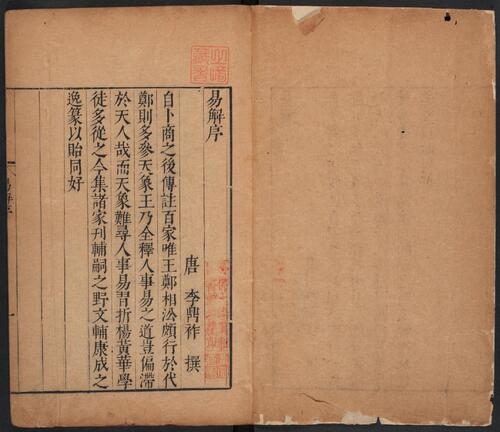 易解序
唐 李鼎祚 撰
自卜商之後傳註百家唯王鄭相㳂頗行於代
鄭則多參天象王乃全釋人事易之道豈偏滯
於天人哉而天象難尋人事易習折楊黃華學
徒多從之今集諸家刋輔嗣之野文輔康成之
逸篆以貽同好
易解序